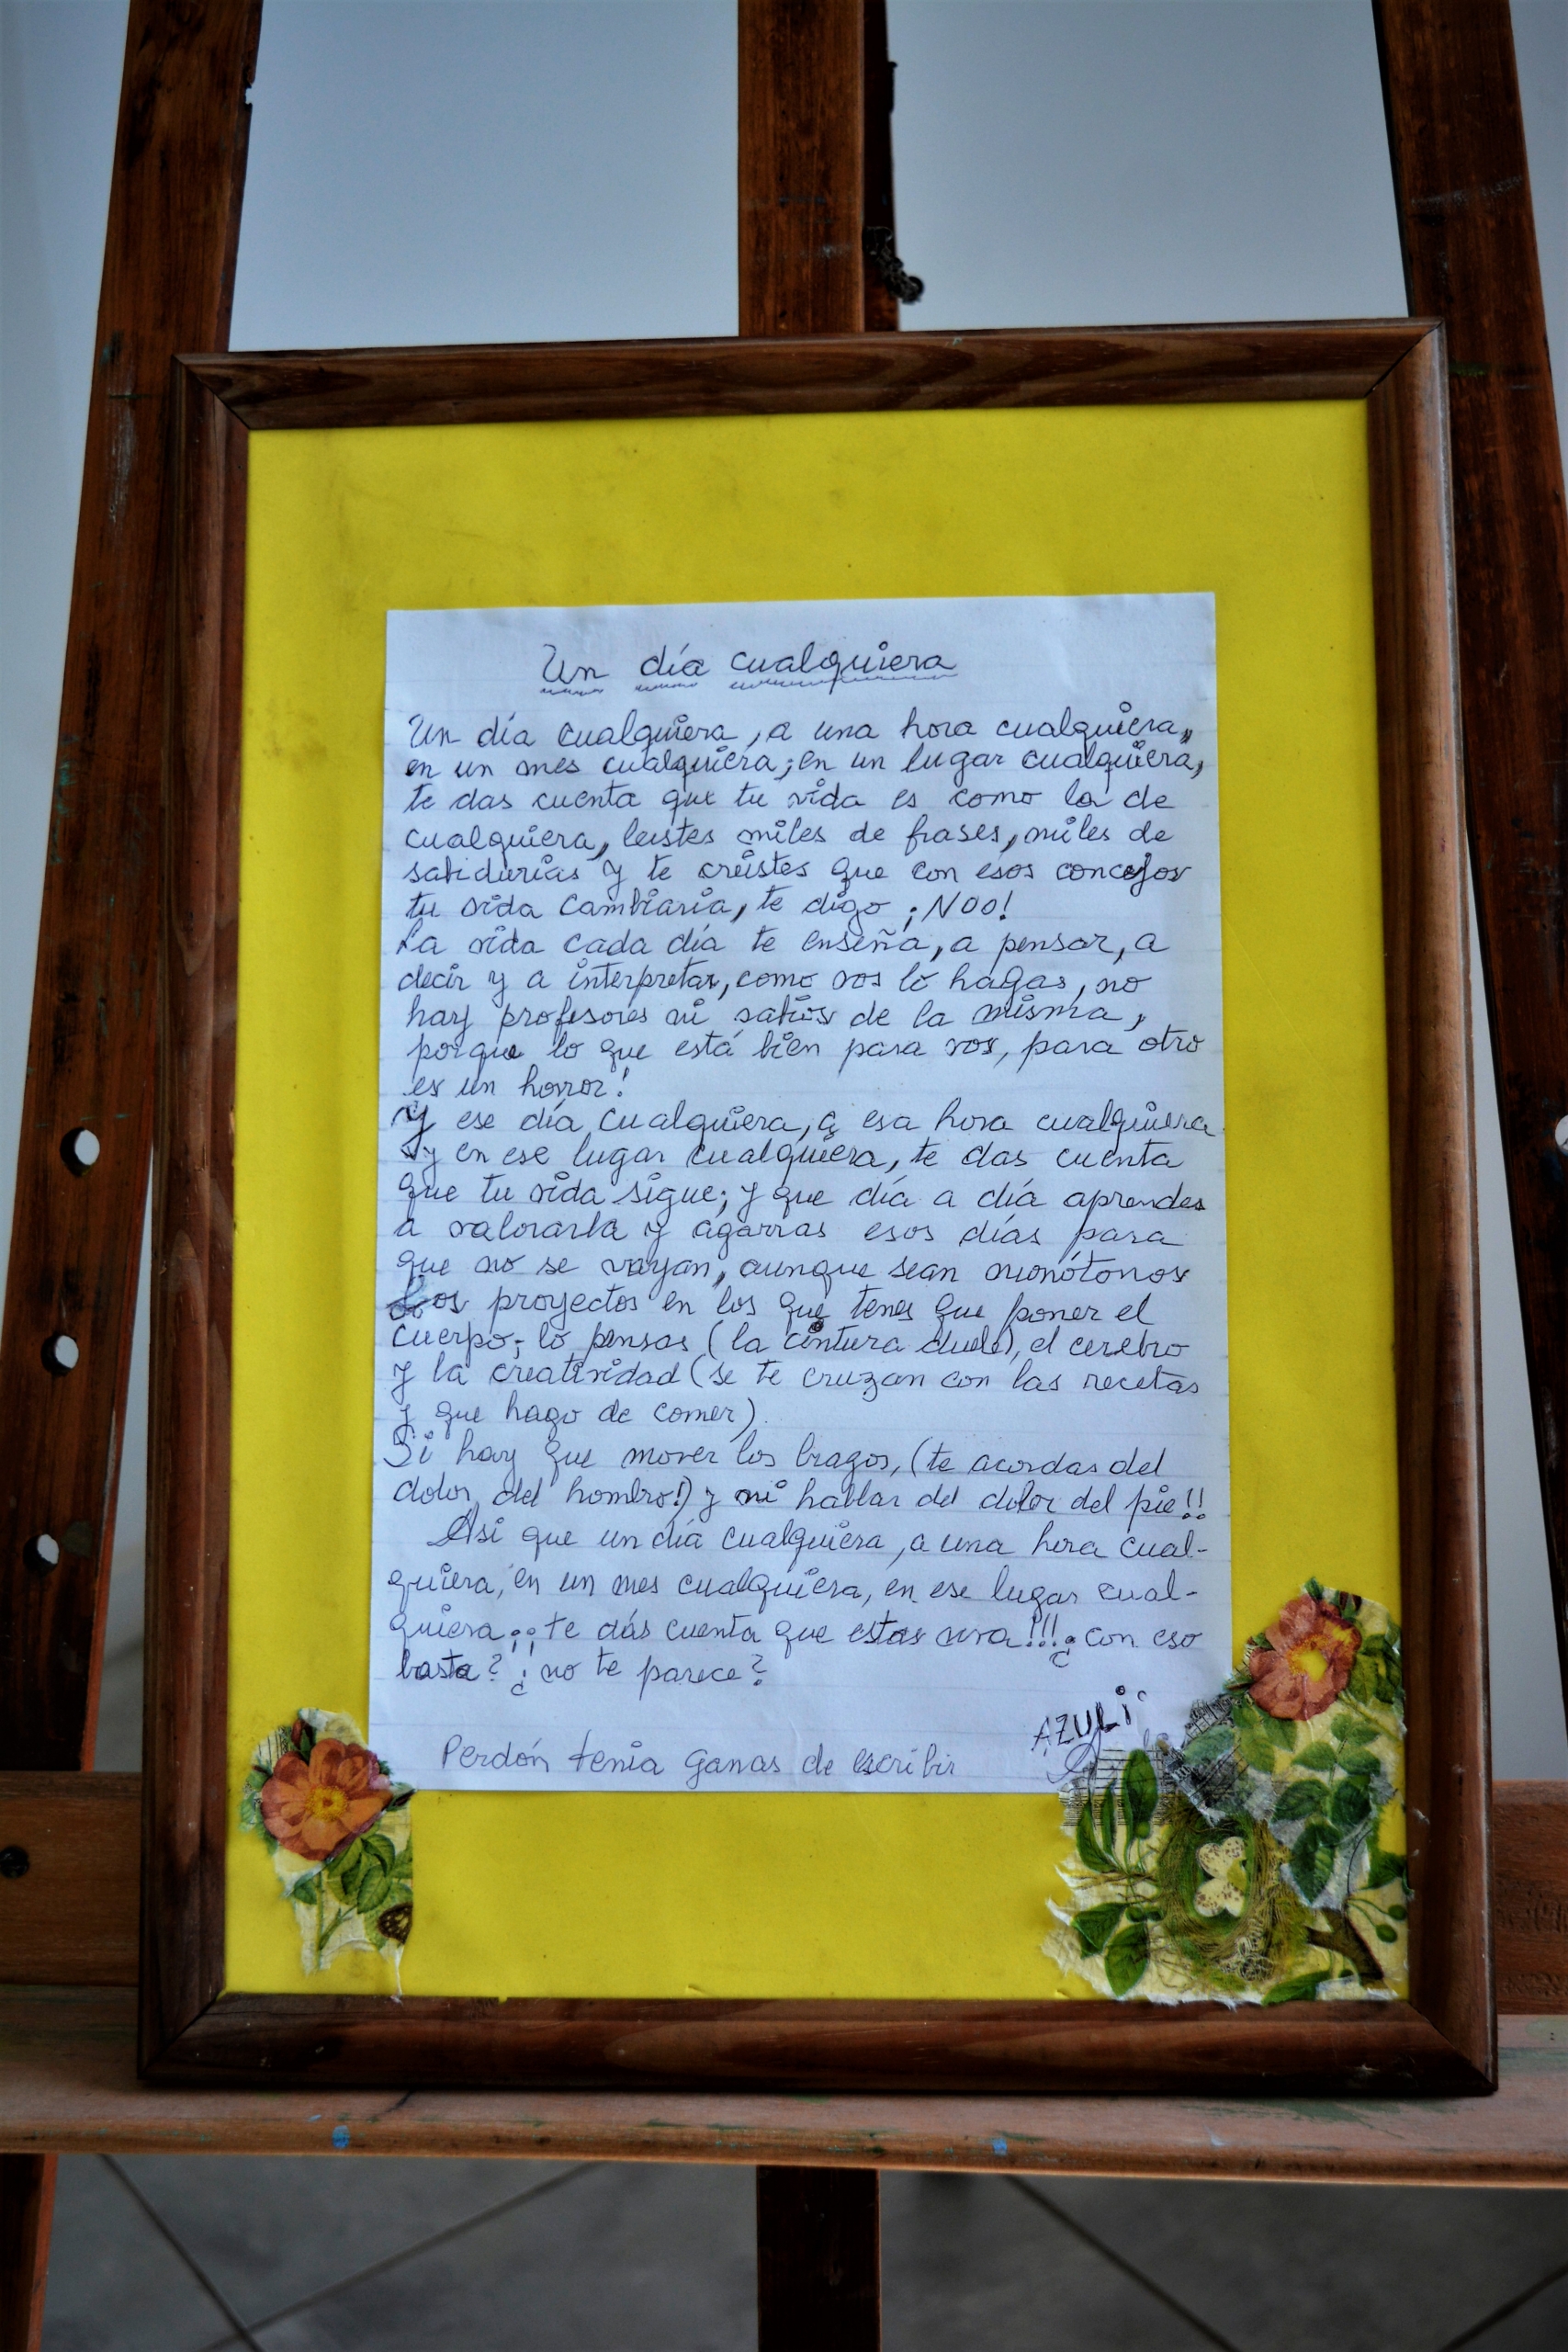 Un día cualquiera
Un día cualquiera, a una hora cualquiera,,
en un mes cualquiera; en un lugar cualquiera,
te das cuenta que tu vida es como la de
cualquiera, leistes miles de frases, miles de
sabidurias y te creistes que con esos concejos
tu vida cambiaria, te digo ¡NOO!
La vida cada día te enseña, a pensar, a
decir y a interpretar, como vos lo hagas, no
hay profesores ni sabios de la misma,
porque lo que está bien para vos, para otro
es un horror!
Y ese día cualquiera, a esa hora cualquiera
y en ese lugar cualquiera, te das cuenta
que tu vida sigue; y que día a día aprendes
a valorarla y agarras esos días para
que no se vayan, aunque sean monótonos
Los proyectos en los que tenes que poner el
cuerpo; lo pensas (la cintura duele), el cerebro
y la creatividad (se te cruzan con las recetas
y que hago de comer)
Si hay que mover los brazos, (te acordas del
dolor del hombro!) y ni hablar del dolor del pie!!
Asi que un día cualquiera, a una hora cual-
quiera, en un mes cualquiera, en ese lugar cual-
quiera ¡¡te dás cuenta que estas viva!!! ¿con eso
basta? ¿no te parece?
AZULi
Perdón tenia ganas de escribir